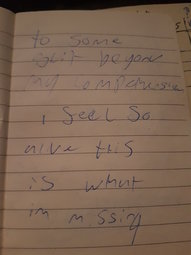 to some
shit beyon
my comprehensie
i feel so
alive this
is what
im missig